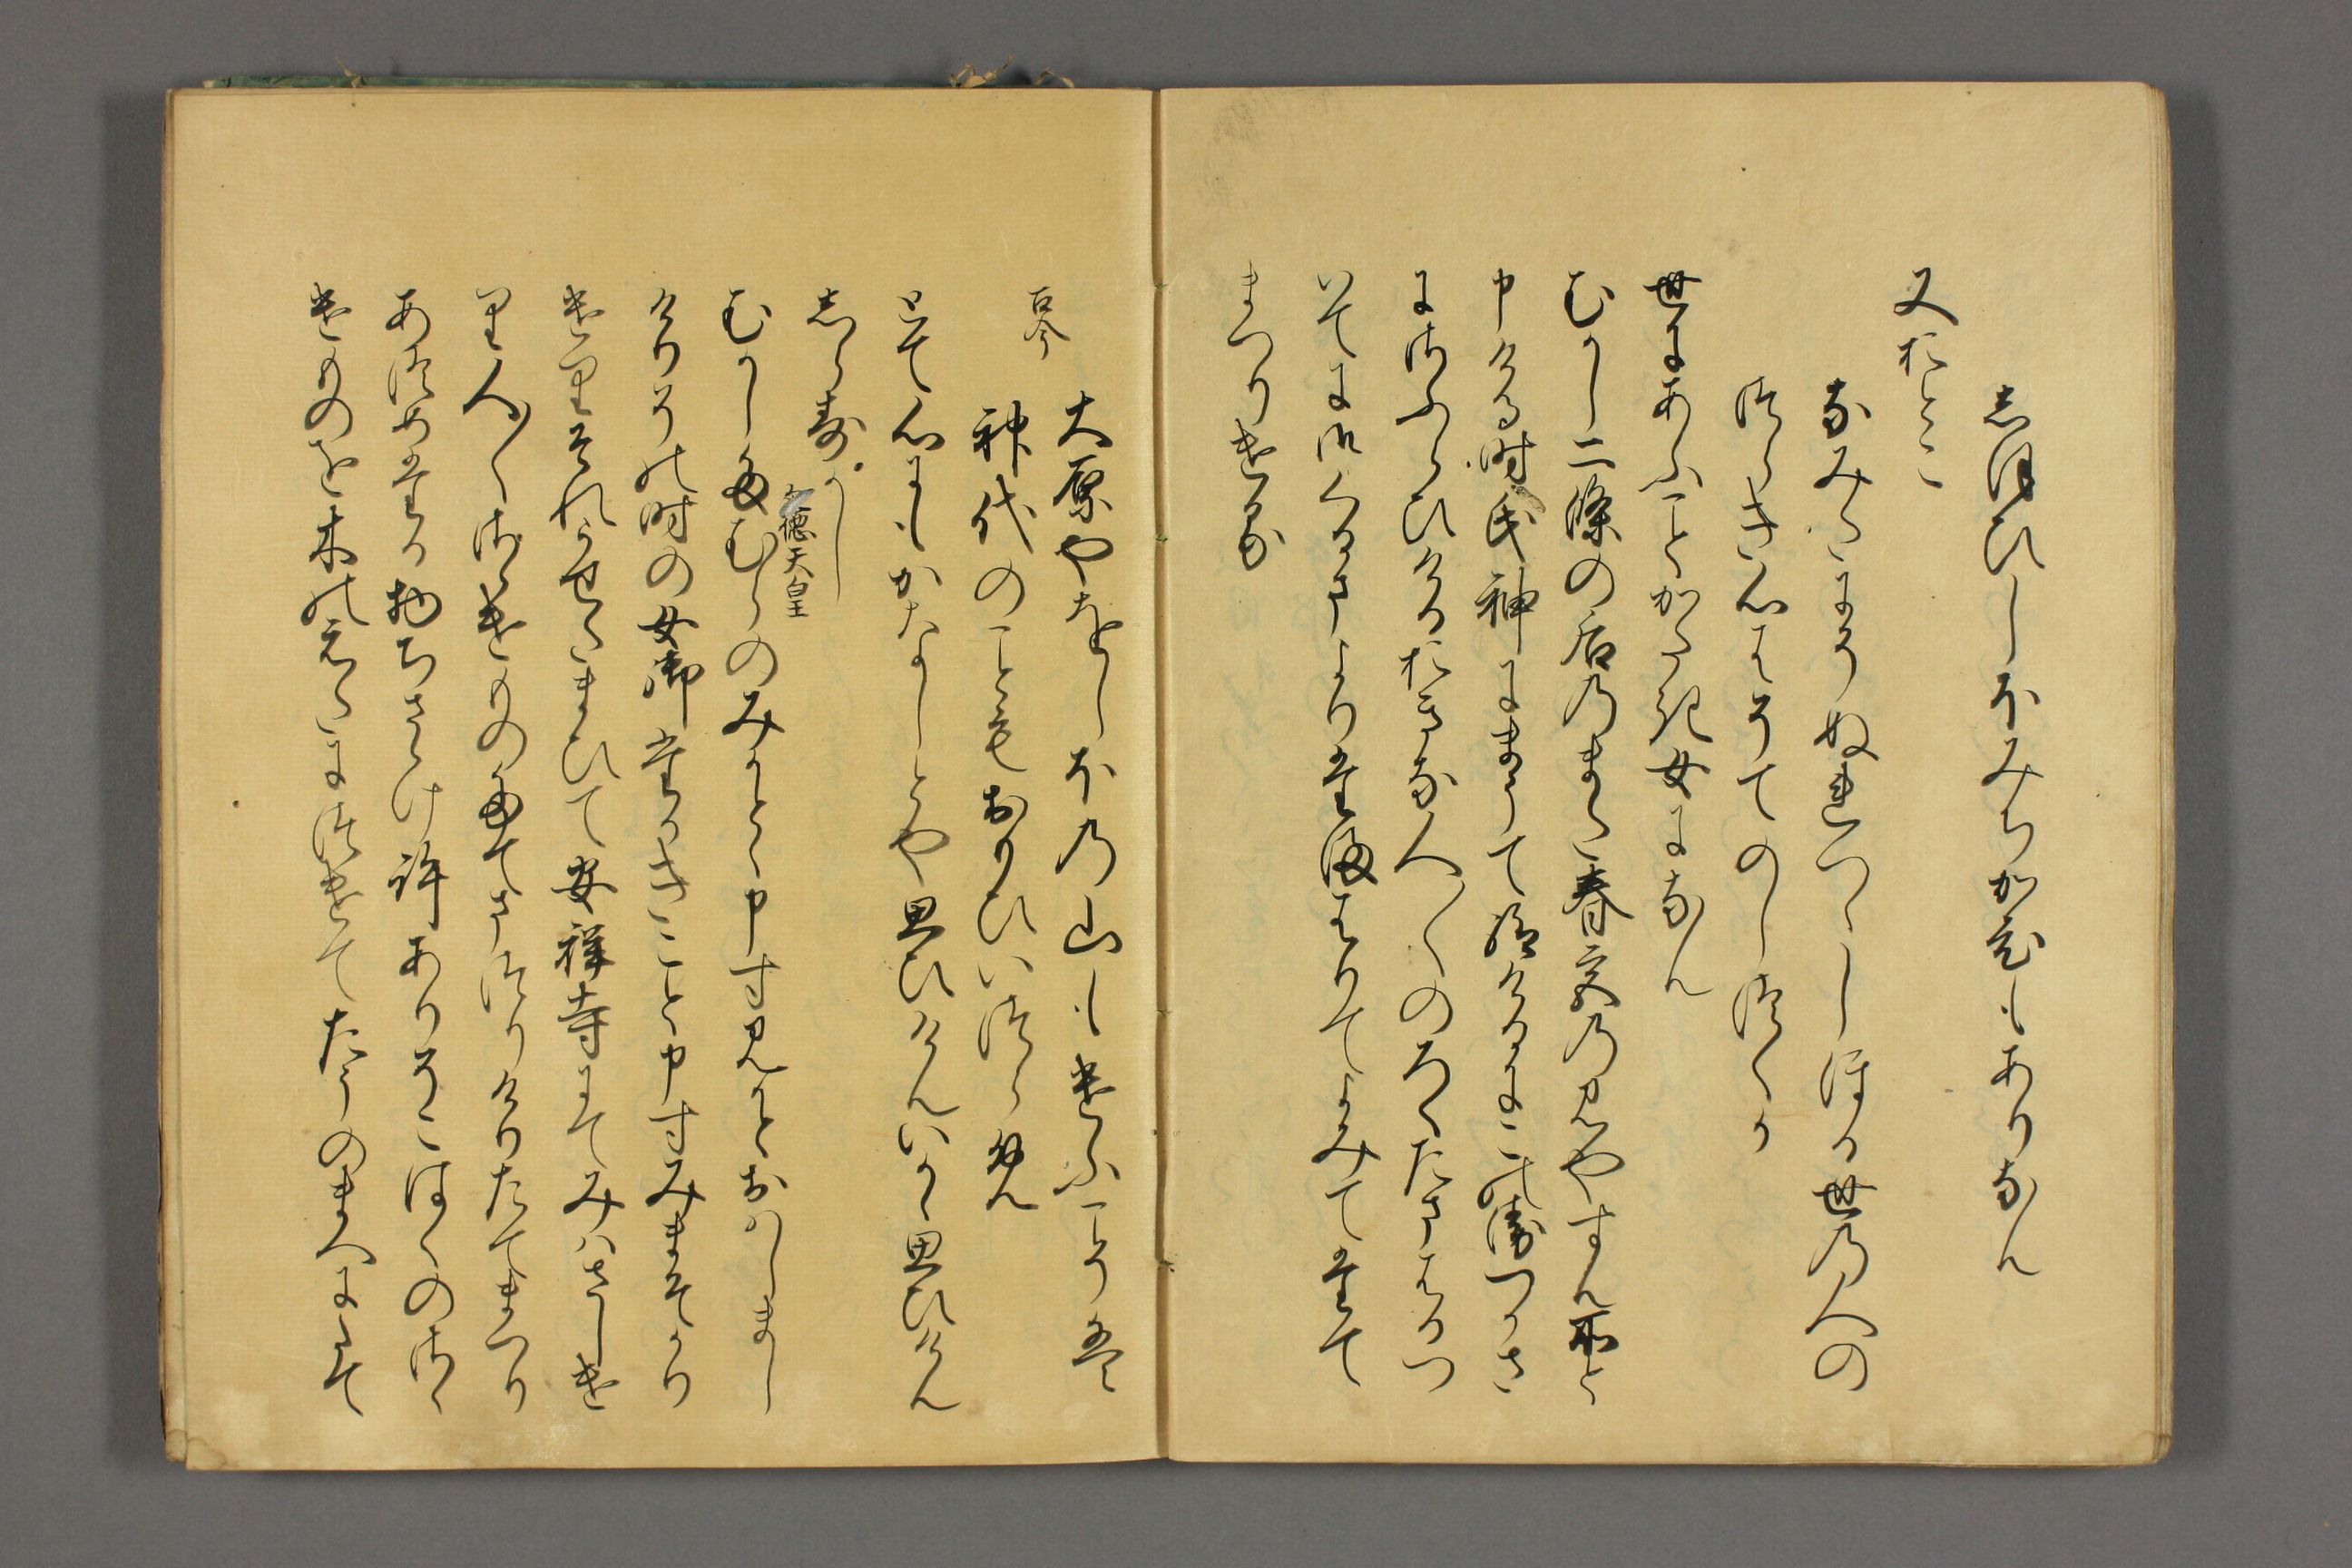 しほひしほみちかひもありなん
又おとこ
なみたにそぬれつゝしほる世の人の
つらき心はそてのしつくか
世にあふことかたき女になん
むかし二條の后のまた春宮のみやすん所と
申ける時氏神にまうて給けるにこのゑつかさ
にさふらひけるおきな人〱のろくたまはるつ
いてに御くるまよりたまはりてよみてたて
まつりける
古今
大原やをしほの山もけふこそは
神代のことも思ひいつらめ
とて心にもかなしとや思ひけんいかゝ思ひけん
しらすかし
文徳天皇
むかしたむらのみかとゝ申すみかとおはしまし
けりその時の女御たかきこと申すみまそかり
けりそれうせたまひて安祥寺にてみわさしけ
り人〱さゝけものたてまつりけりたてまつり
あつめたる物ちさゝけ許ありそこはくのさゝ
けものを木のえたにつけてたうのまへにたて